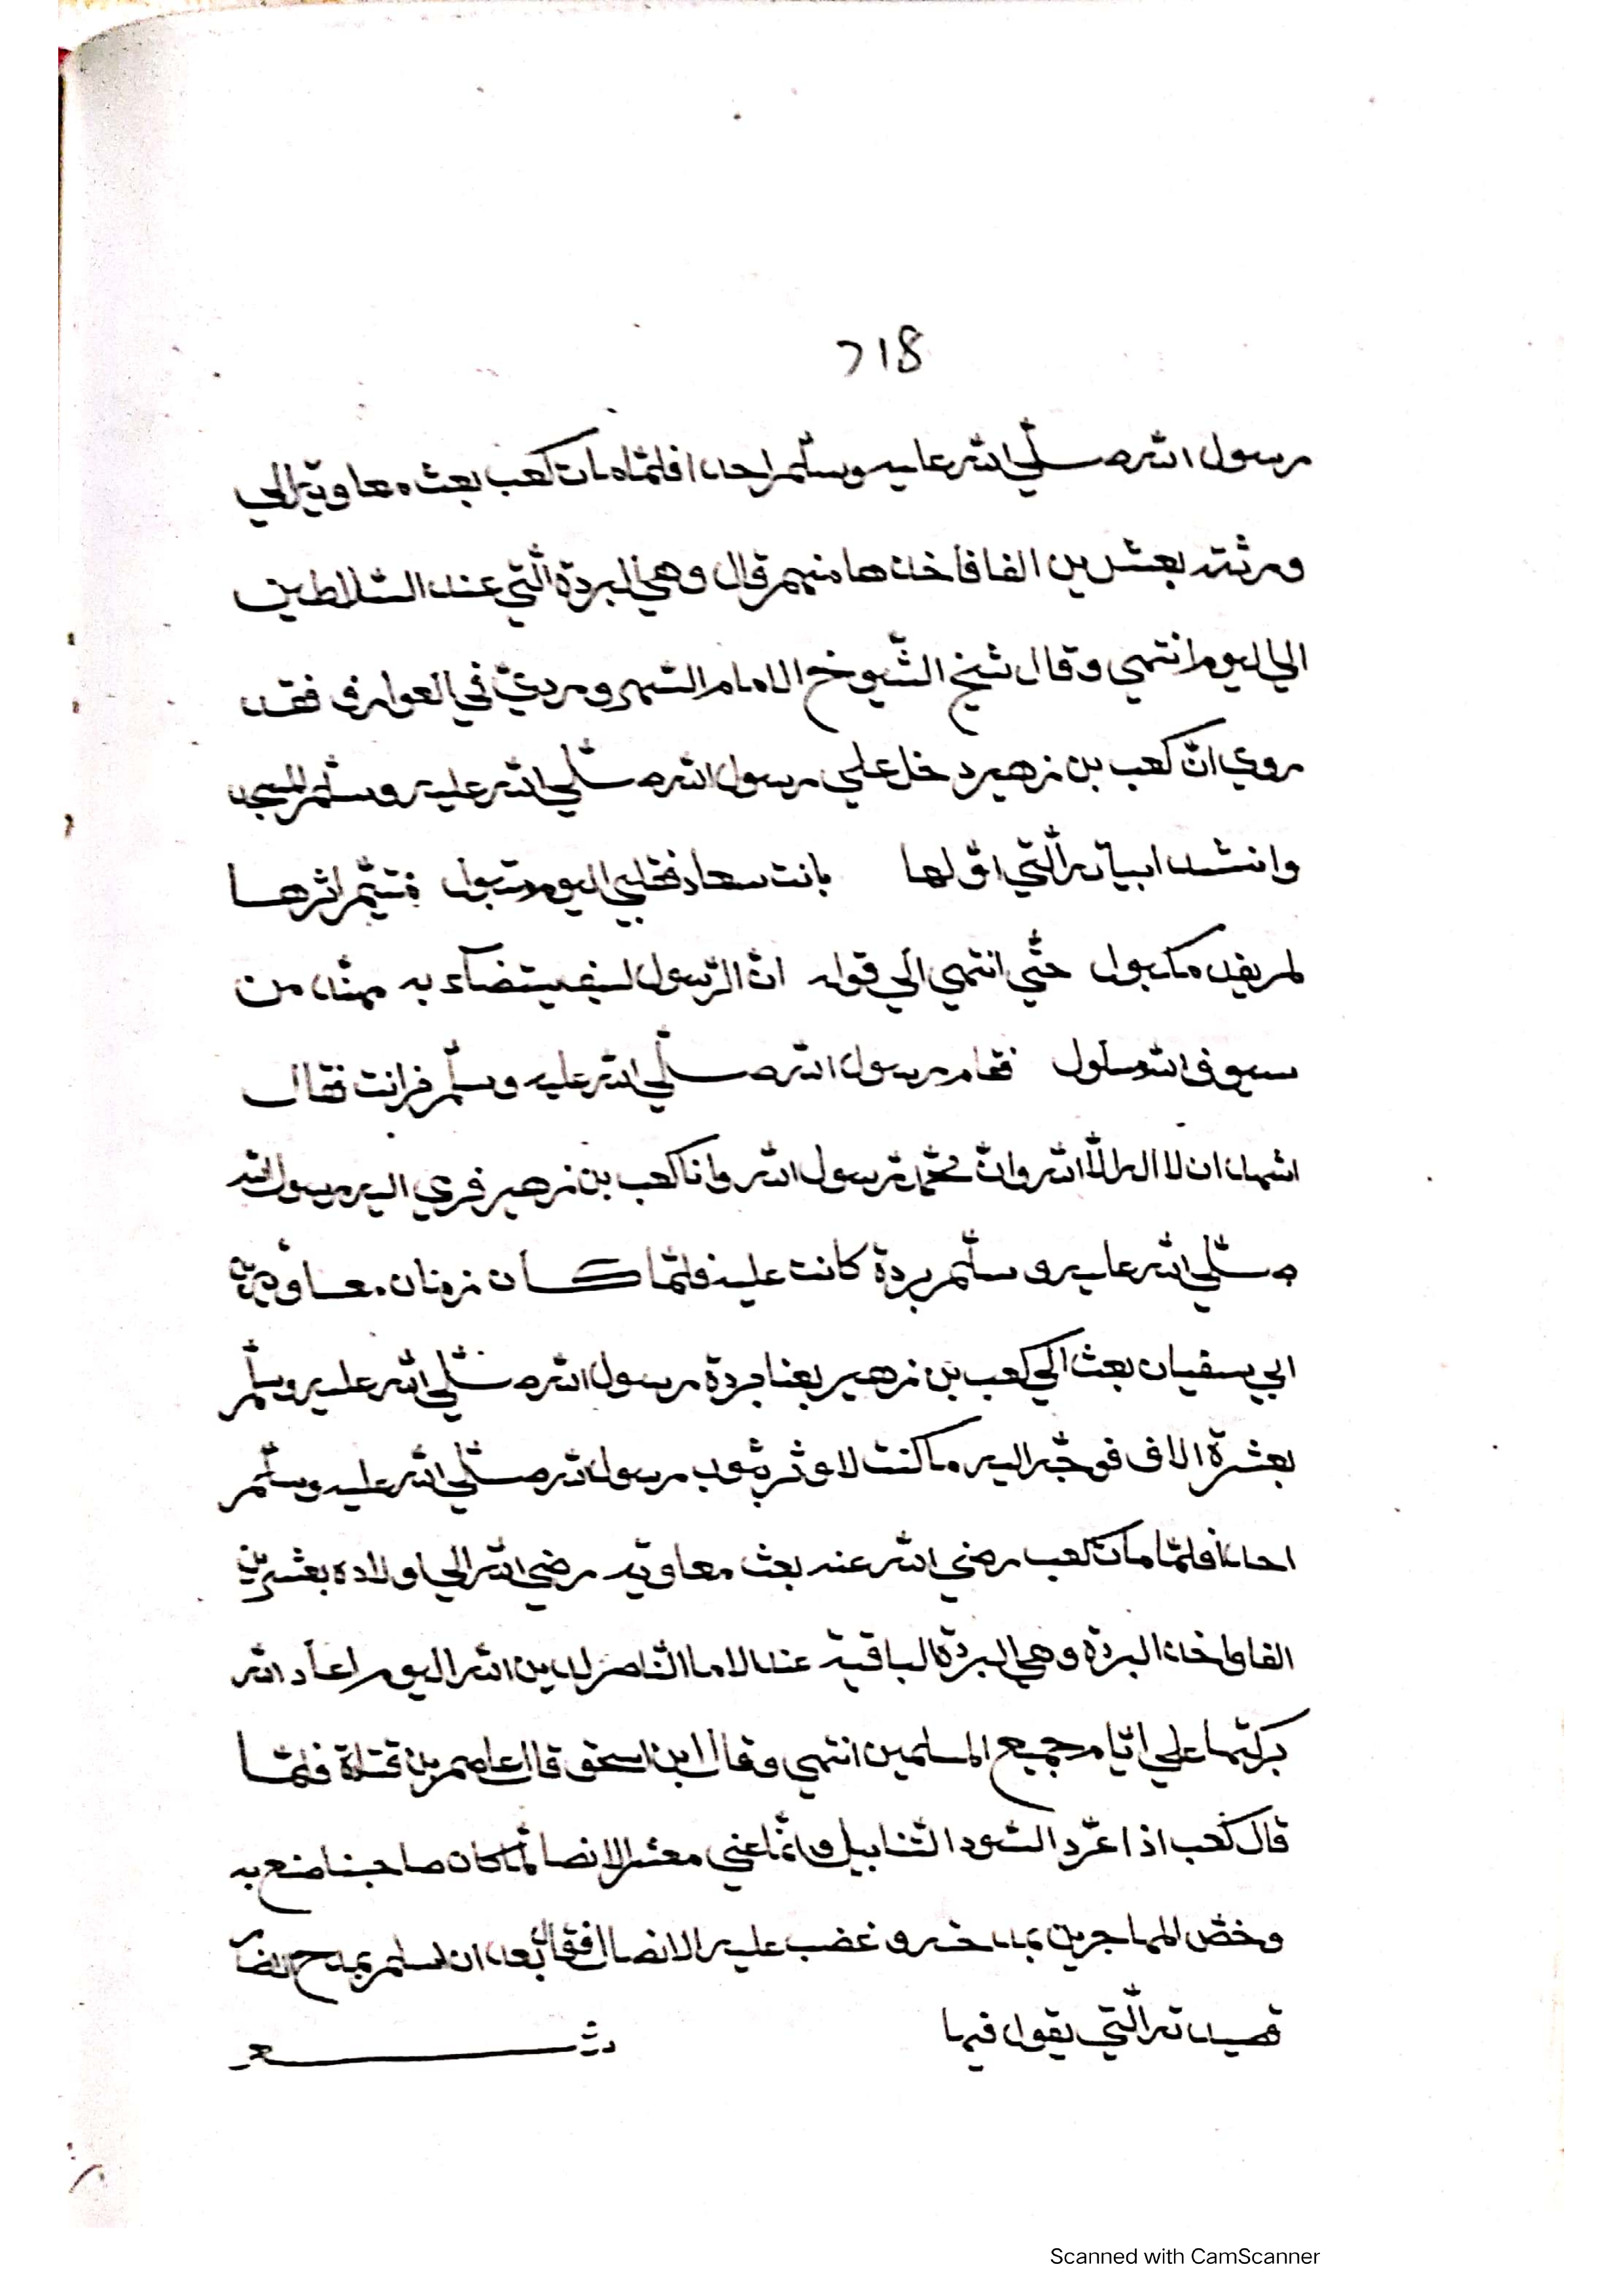 718
رسول الله صلّي الله عليه وسلّم احدا فلمّا مات كعب بعث معاوية الي
ورثته بعشرين الفا فاخذها منهم قال وهي البردة الّتي عند السّلاطين
الي اليوم انتهي وقال شيخ الشّيوخ الامام السّهرورديّ في العوارف فقد
روي انّ كعب بن زهير دخل علي رسول الله صلّي الله عليه وسلّم المسجد
وانشد ابياته الّتي اوّلها بانت سعاد فقلبي اليوم متبول متيّم اثرها
لم يفد مكبول حتّي انتهي الي قوله انّ الرّسول لسيف يستضاء به مهنّد من
سيوف الله مسلول فقام رسول الله صلّي الله عليه وسلّم من انت فقال
اشهد ان لا اله الّا الله وانّ محمّدا رسول الله وانا كعب بن زهير فرمي اليه رسول الله
صلّي الله عليه وسلّم بردة كانت عليه فلمّا كان زمان معاوية بن
ابي سفيان بعث الي كعب بن زهير بعنا بردة رسول الله صلّي الله عليه وسلّم
بعشرة الاف فوجّه اليه ما كنت لاوثر بثوب رسول الله صلّي الله عليه وسلّم
احدا فلمّا مات كعب رضي الله عنه بعث معاوية رضي الله الي اولاده بعشرين
الفا واخذ البردة وهي البردة الباقية عند الاما النّاصر لدين الله اليوم اعاد الله
بركتها علي ايّام جميع المسلمين انتهي وقال ابن اسحق قال عاصم بن قتادة فلمّا
قال كعب اذا عرّد السّود التّنابيل وانّما عني معشر الانصا لمّا كان صاحبنا صنع به
وخصّ المهاجرين بمدحته وغضب عليه الانصار فقال بعد ان اسلم يمدح
قصيدته الّتي يقول فيها شعر
Scanned with CamScanner